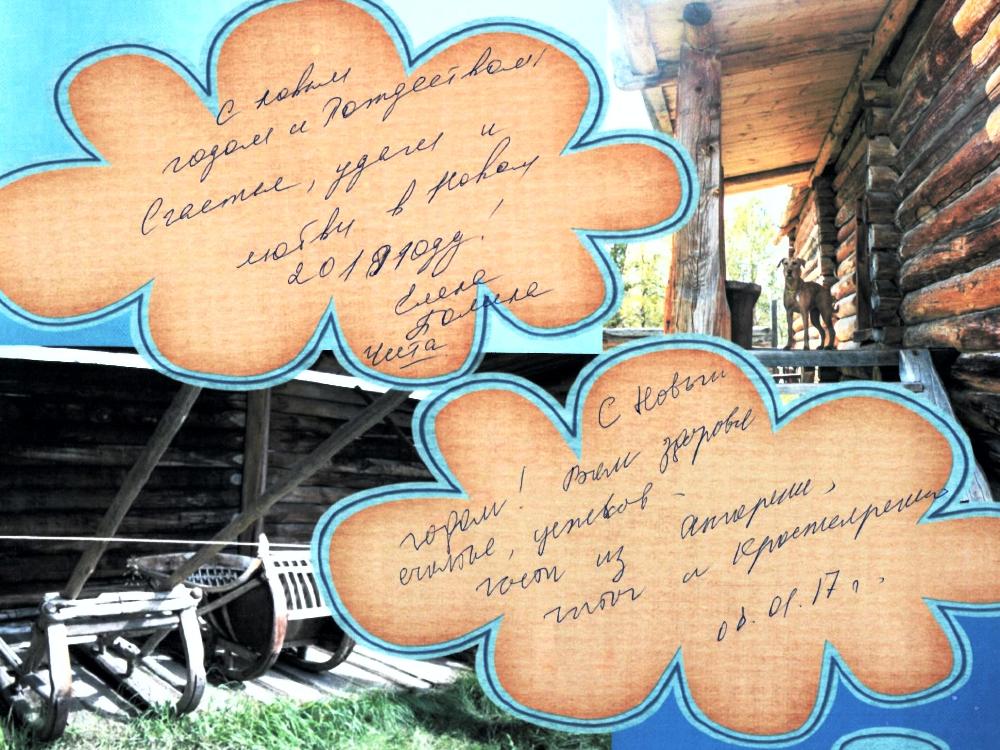 С новым
годом и Рождеством!
Счастье, удачи и
любви в Новом
2019 году!
Елена
Полина
Чита
С Новым
годом! Всем здоровье
счастье, успехов -
гости из Ангарска,
и
06.01.17 г.